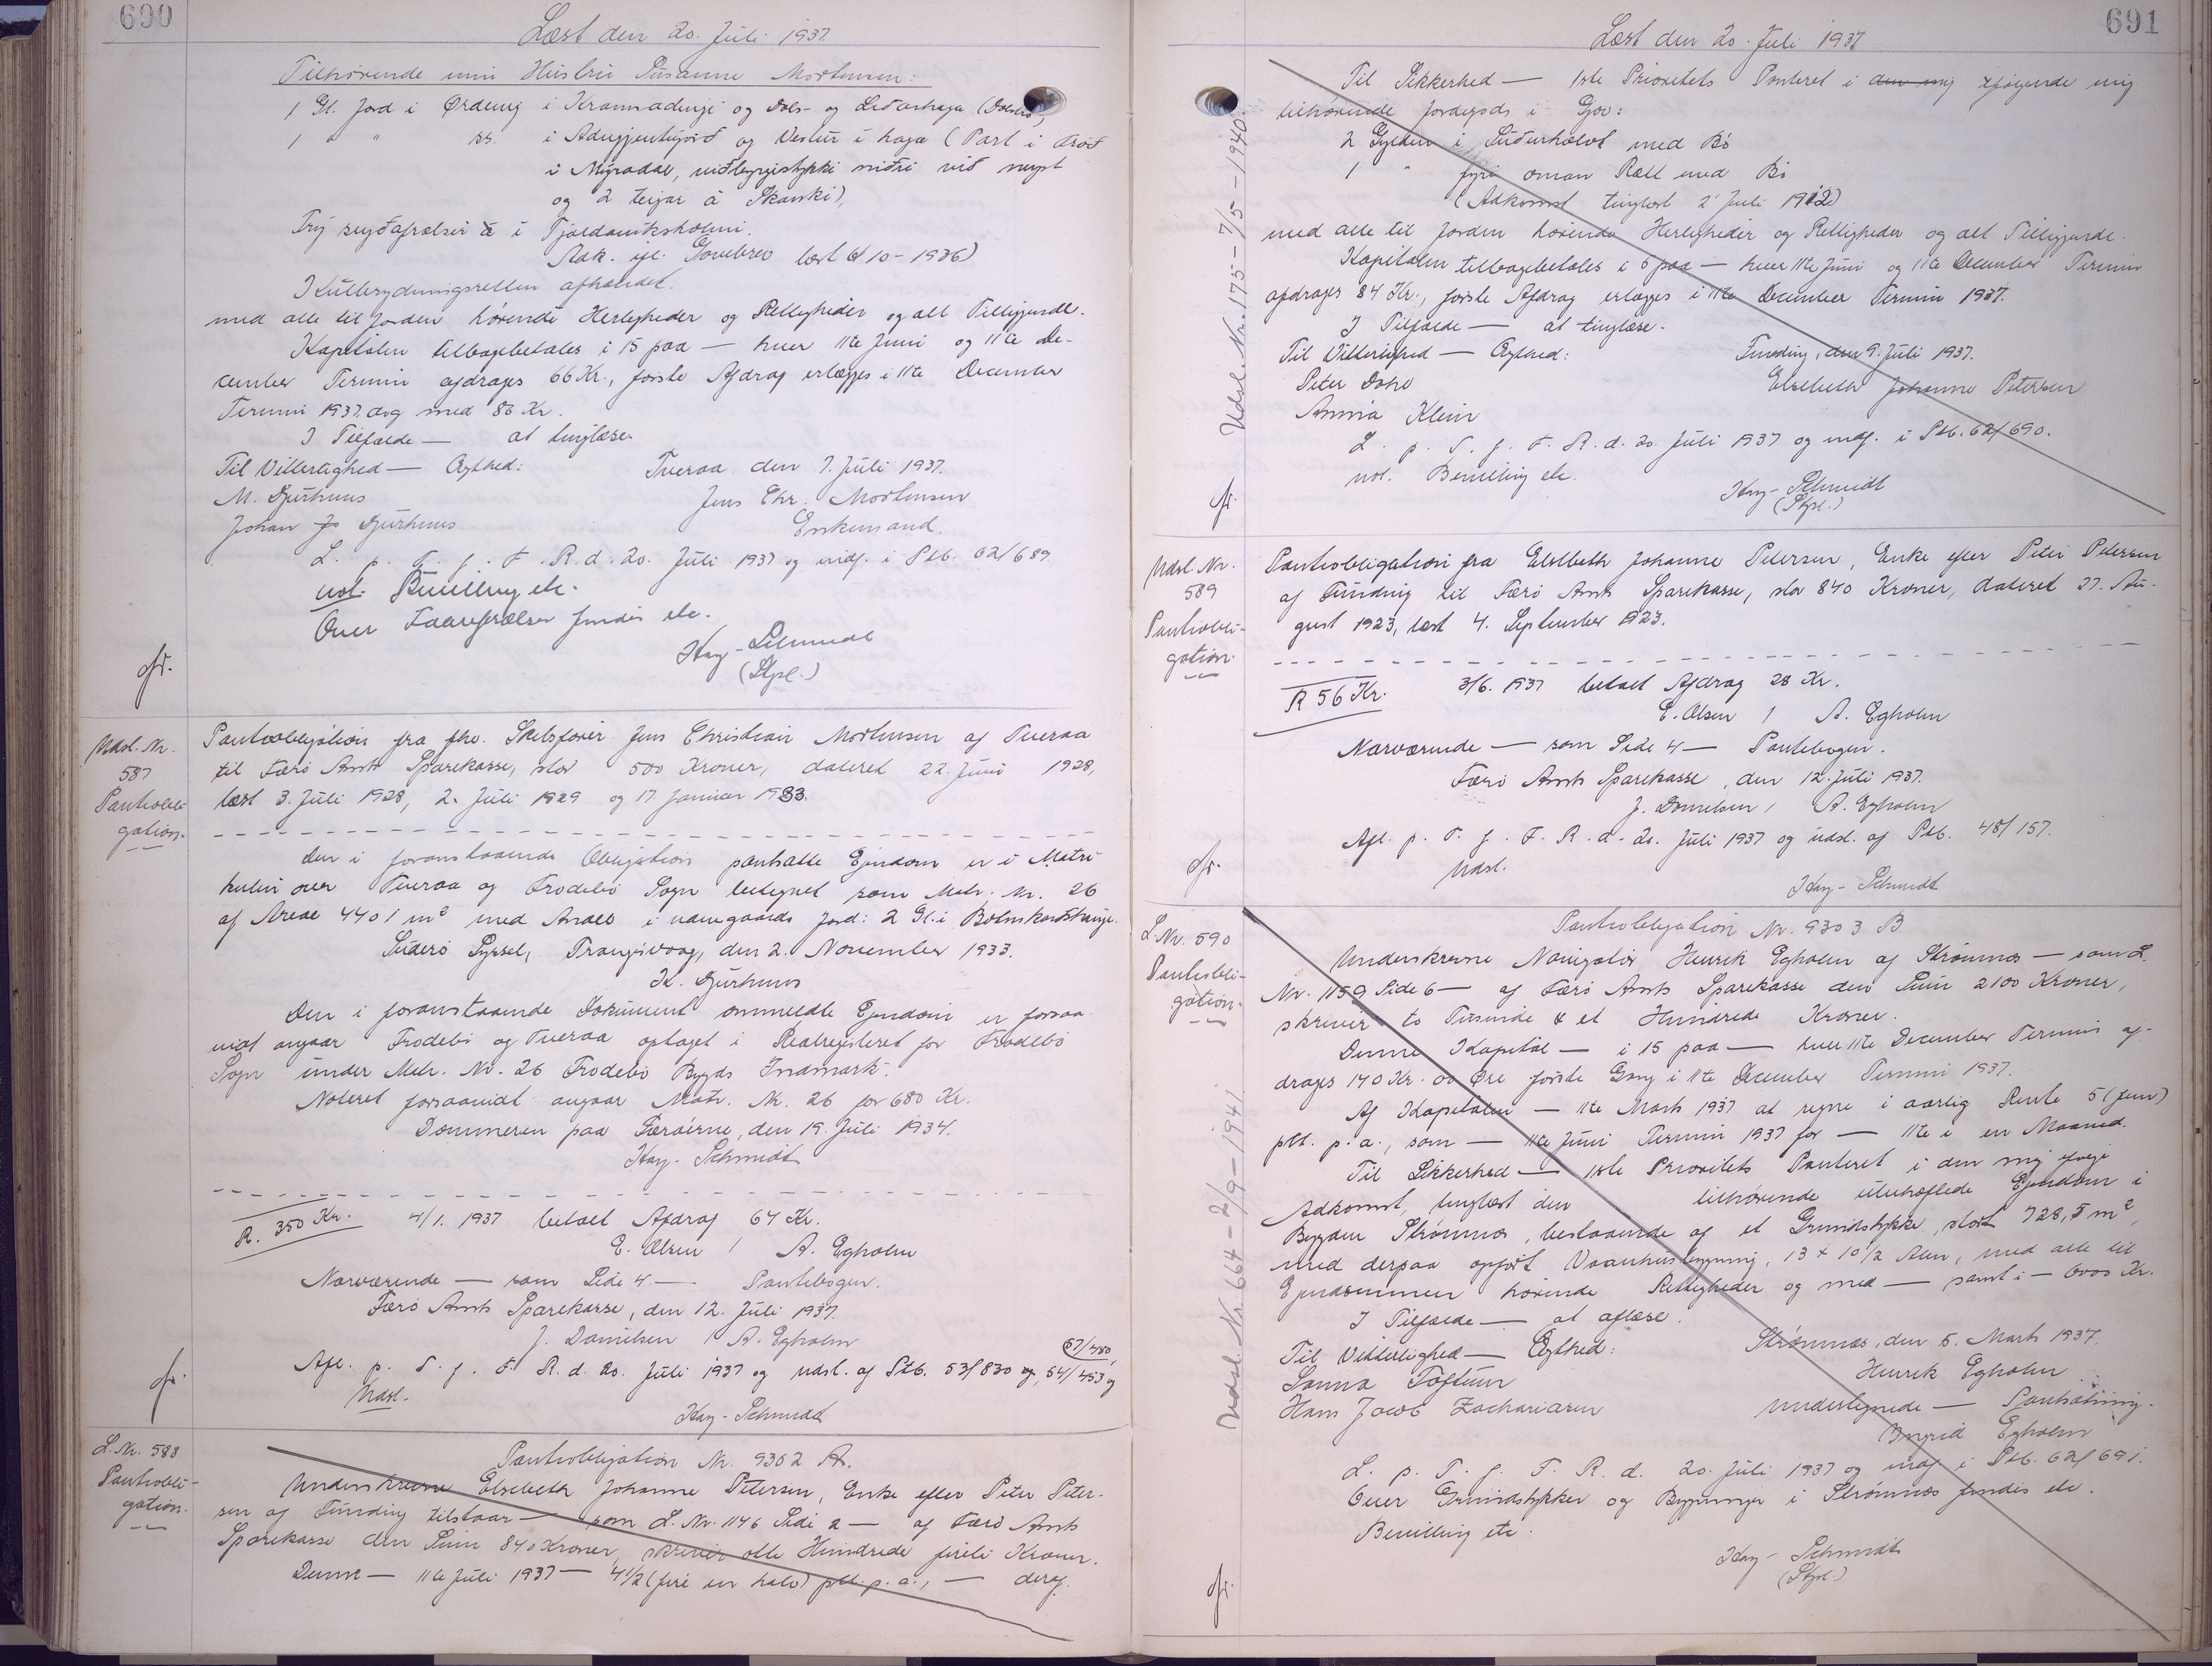 690
Læst den 20. Juli 1937.
Tilhørende min Hustru Susanne Mortensen:
1 Gl. Jord i Ørding i Kramsadingi og Dols- og Liðarhaga (Dolshö)
1 " " rs. i Adugjentújorð og Vestur i haga (Part i
i Mýradal, niðri við neyst
og 2 teigar á Skarski),
Trý seyðafrælsir i Tjaldavíksholmi.
Adk. ifl. Gavebrev læst 6/10-1936)
med alle til Jorden hørende Herligheder og Rettigheder og alt Tilliggende.
Kapitalen tilbagebetales i 15 paa — hver 11te Juni og 11te De-
cember Termin afdrages 66 Kr., første Afdrag erlægges i 11te December
Termin 1937. dog med 86 Kr.
I Tilfælde — at tinglæse.
Til Vitterlighed — Ægthed: Tveraa den 7. Juli 1937.
M. Djurhuus Jens Chr. Mortensen
Johan Js Djurhuus Enkemand.
L. p. T. f. F. R. d. 20. Juli 1937 og indf. i Ptb. 62/689
vol. Bevilling etc.
Over Faarefrælser findes etc.
Kay-Schmidt
(Stpl.)
Udsl. Nr.
587
Pantobli-
gation.
Pantobligation fra fhv. Skibsfører Jens Christian Mortensen af Tveraa
til Færø Amts Sparekasse, stor 500 Kroner, dateret 22. Juni 1928,
læst 3. Juli 1928, 2. Juli 1929 og 17. Januar 1933.
Den i foranstaaende Obligation pantsatte Ejendom er i Matri-
kulen over Tveraa og Frodebø Sogn betegnet som Matr. Nr. 26
af Areal 4401 m² med Andel i udmegaards Jord: 2 Gl. i
Suderø Syssel, Trangisvaag, den 2. November 1933.
K. Djurhuus
Den i foranstaaende Dokument ommeldte Ejendom er forsaa-
vidt angaar Frodebø og Tveraa optaget i Realregisteret for Frodebø
Sogn under Matr. Nr. 26 Frodebø Bygds Indmark.
Noteret forsaavidt angaar Matr. Nr. 26 for 680 Kr.
Dommeren paa Færøerne, den 19. Juli 1934.
Kay-Schmidt
R. 350 Kr. 4/1. 1937 betalt Afdrag 64 Kr.
E. Olsen / A. Egholm
Nærværende — som Side 4 — Pantebogen.
Færø Amts Sparekasse, den 12. Juli 1937.
J. Danielsen / A. Egholm
Afl. p. T. f. F. R. d. 20. Juli 1937 og udsl. af Ptb. 53/830 og 54/453 og 57/480
Udsl.
Kay-Schmidt
L. Nr. 588
Pantobli-
gation.
Pantobligation Nr. 9302 A.
Underskrevne Elsebeth Johanne Petersen, Enke efter Peter Peter-
sen af Funding tilstaar — som L. Nr. 1146 Side 2 — af Færø Amts
Sparekasse den Sum 840 Kroner, skriver otte Hundrede fireti Kroner.
Denne — 11te Juli 1937 — 4½ (fire en halv) pCt. p. a., — deraf.
691
Læst den 20. Juli 1937
Til Sikkerhed — 1ste Prioritets Panteret i den mig følgende mig
tilhørende Jordegods i Gjov:
2 Gylden i Suðurhálvt med Bø
1 " fyri oman Ræll med Bø
(Adkomst tinglæst 2 Juli 1912)
med alle til Jorden hørende Herligheder og Rettigheder og alt Tilliggende.
Kapitalen tilbagebetales i 5 paa — hver 11te Juni og 11te December Termin
afdrages 84 Kr., første Afdrag erlægges i 11te December Termin 1937.
I Tilfælde — at tinglæse.
Til Vitterlighed — Ægthed: Funding, den 9. Juli 1937.
Peter Dahl Elsebeth Johanne Petersen
Annia Klein
L. p. T. f. F. R. d. 20. Juli 1937 og indf. i Ptb. 62/690.
vol. Bevilling etc.
Kay-Schmidt
(Stpl.)
Udsl. Nr. 175 - 7/5 - 1940.
Udsl. Nr.
589
Pantobli-
gation.
Pantobligation fra Elsebeth Johanne Petersen, Enke efter Peter Petersen
af Funding til Færø Amts Sparekasse, stor 840 Kroner, dateret 27. Au-
gust 1923, læst 4. September 1923.
R 56 Kr. 3/6. 1937 betalt Afdrag 28 Kr.
E. Olsen / A. Egholm
Nærværende — som Side 4 — Pantebogen.
Færø Amts Sparekasse, den 12. Juli 1937.
J. Danielsen / A. Egholm
Afl. p. T. f. F. R. d. 20. Juli 1937 og udsl. af Ptb. 48/157.
Udsl.
Kay-Schmidt
L. Nr. 590
Pantobli-
gation.
Pantobligation Nr. 9303 B.
Underskrevne Navigatør Henrik Egholm af Strømnæs — som L.
Nr. 1159 Side 6 — af Færø Amts Sparekasse den Sum 2100 Kroner,
skriver to Tusinde & et Hundrede Kroner.
Denne Kapital — i 15 paa — hver 11te December Termin af-
drages 140 Kr. 00 Øre første Gang i 11te December Termin 1937.
Af Kapitalen — 11te Marts 1937 at regne i aarlig Rente 5 (fem)
pCt. p. a., som — 11te Juni Termin 1937 for — 11te i en Maaned.
Til Sikkerhed — 1ste Prioritets Panteret i den mig ifølge
Adkomst, tinglæst den tilhørende ubehæftede Ejendom i
Bygden Strømnæs, bestaaende af et Grundstykke, stort 728,5 m²,
med derpaa opført Vaaanhusbygning, 13 x 10 1/2 Alen, med alle til
Ejendommen hørende Rettigheder og med — samt i — 6000 Kr.
I Tilfælde — at aflæse.
Til Vitterlighed — Ægthed: Strømnæs, den 5. Marts 1937.
Sanna Toftum Henrik Egholm
Hans Jacob Zachariasen Undertegnede — Pantsætning.
Ingrid Egholm
L. p. T. f. F. R. d. 20. Juli 1937 og indf. i Ptb. 62/691.
Over Grundstykker og Bygninger i Strømnæs findes etc.
Bevilling etc.
Kay-Schmidt
(Stpl.)
Udsl. Nr. 664 - 2/9 - 1941